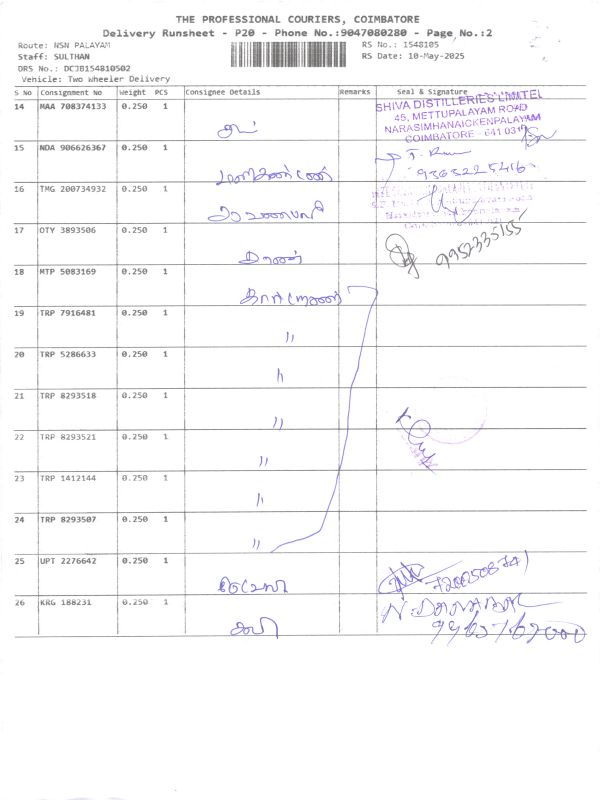 THE PROFESSIONAL COURIERS, COIMBATORE
Delivery Runsheet - P20 - Phone No.:9047080280 - Page No.:2
Route: NSN PALAYAM RS No.: 1548105
Staff: SULTHAN RS Date: 10-May-2025
DRS No.: DCJB154810502
Vehicle: Two Wheeler Delivery
S No Consignment No Weight PCS Consignee Details Remarks Seal & Signature
14 MAA 708374133 0.250 1
SHIVA DISTILLERIES LIMITED
45, METTUPALAYAM ROAD
NARASIMHANAICKENPALAYAM
COIMBATORE - 641 031
15 NDA 906626367 0.250 1 மணிகண்டன்
9363225416
16 TMG 200734932 0.250 1
17 DTY 3893506 0.250 1
9952335155
18 MTP 5083169 0.250 1
19 TRP 7916481 0.250 1 "
20 TRP 5286633 0.250 1 "
21 TRP 8293518 0.250 1 "
22 TRP 8293521 0.250 1 "
23 TRP 1412144 0.250 1 "
24 TRP 8293507 0.250 1 "
25 UPT 2276642 0.250 1
26 KRG 188231 0.250 1 கபி